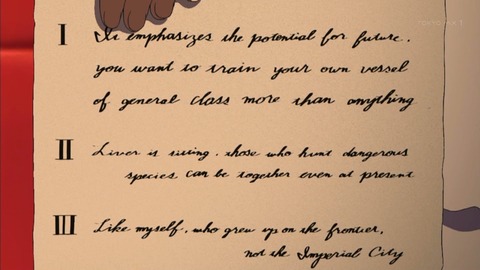 I It emphasizes the potential for future.
you want to train your own vessel
of general class more than anything
II Liver is rising. those who hunt dangerous
species can be together even at present
III Like myself, who grew up on the frontier,
not the Imperial City